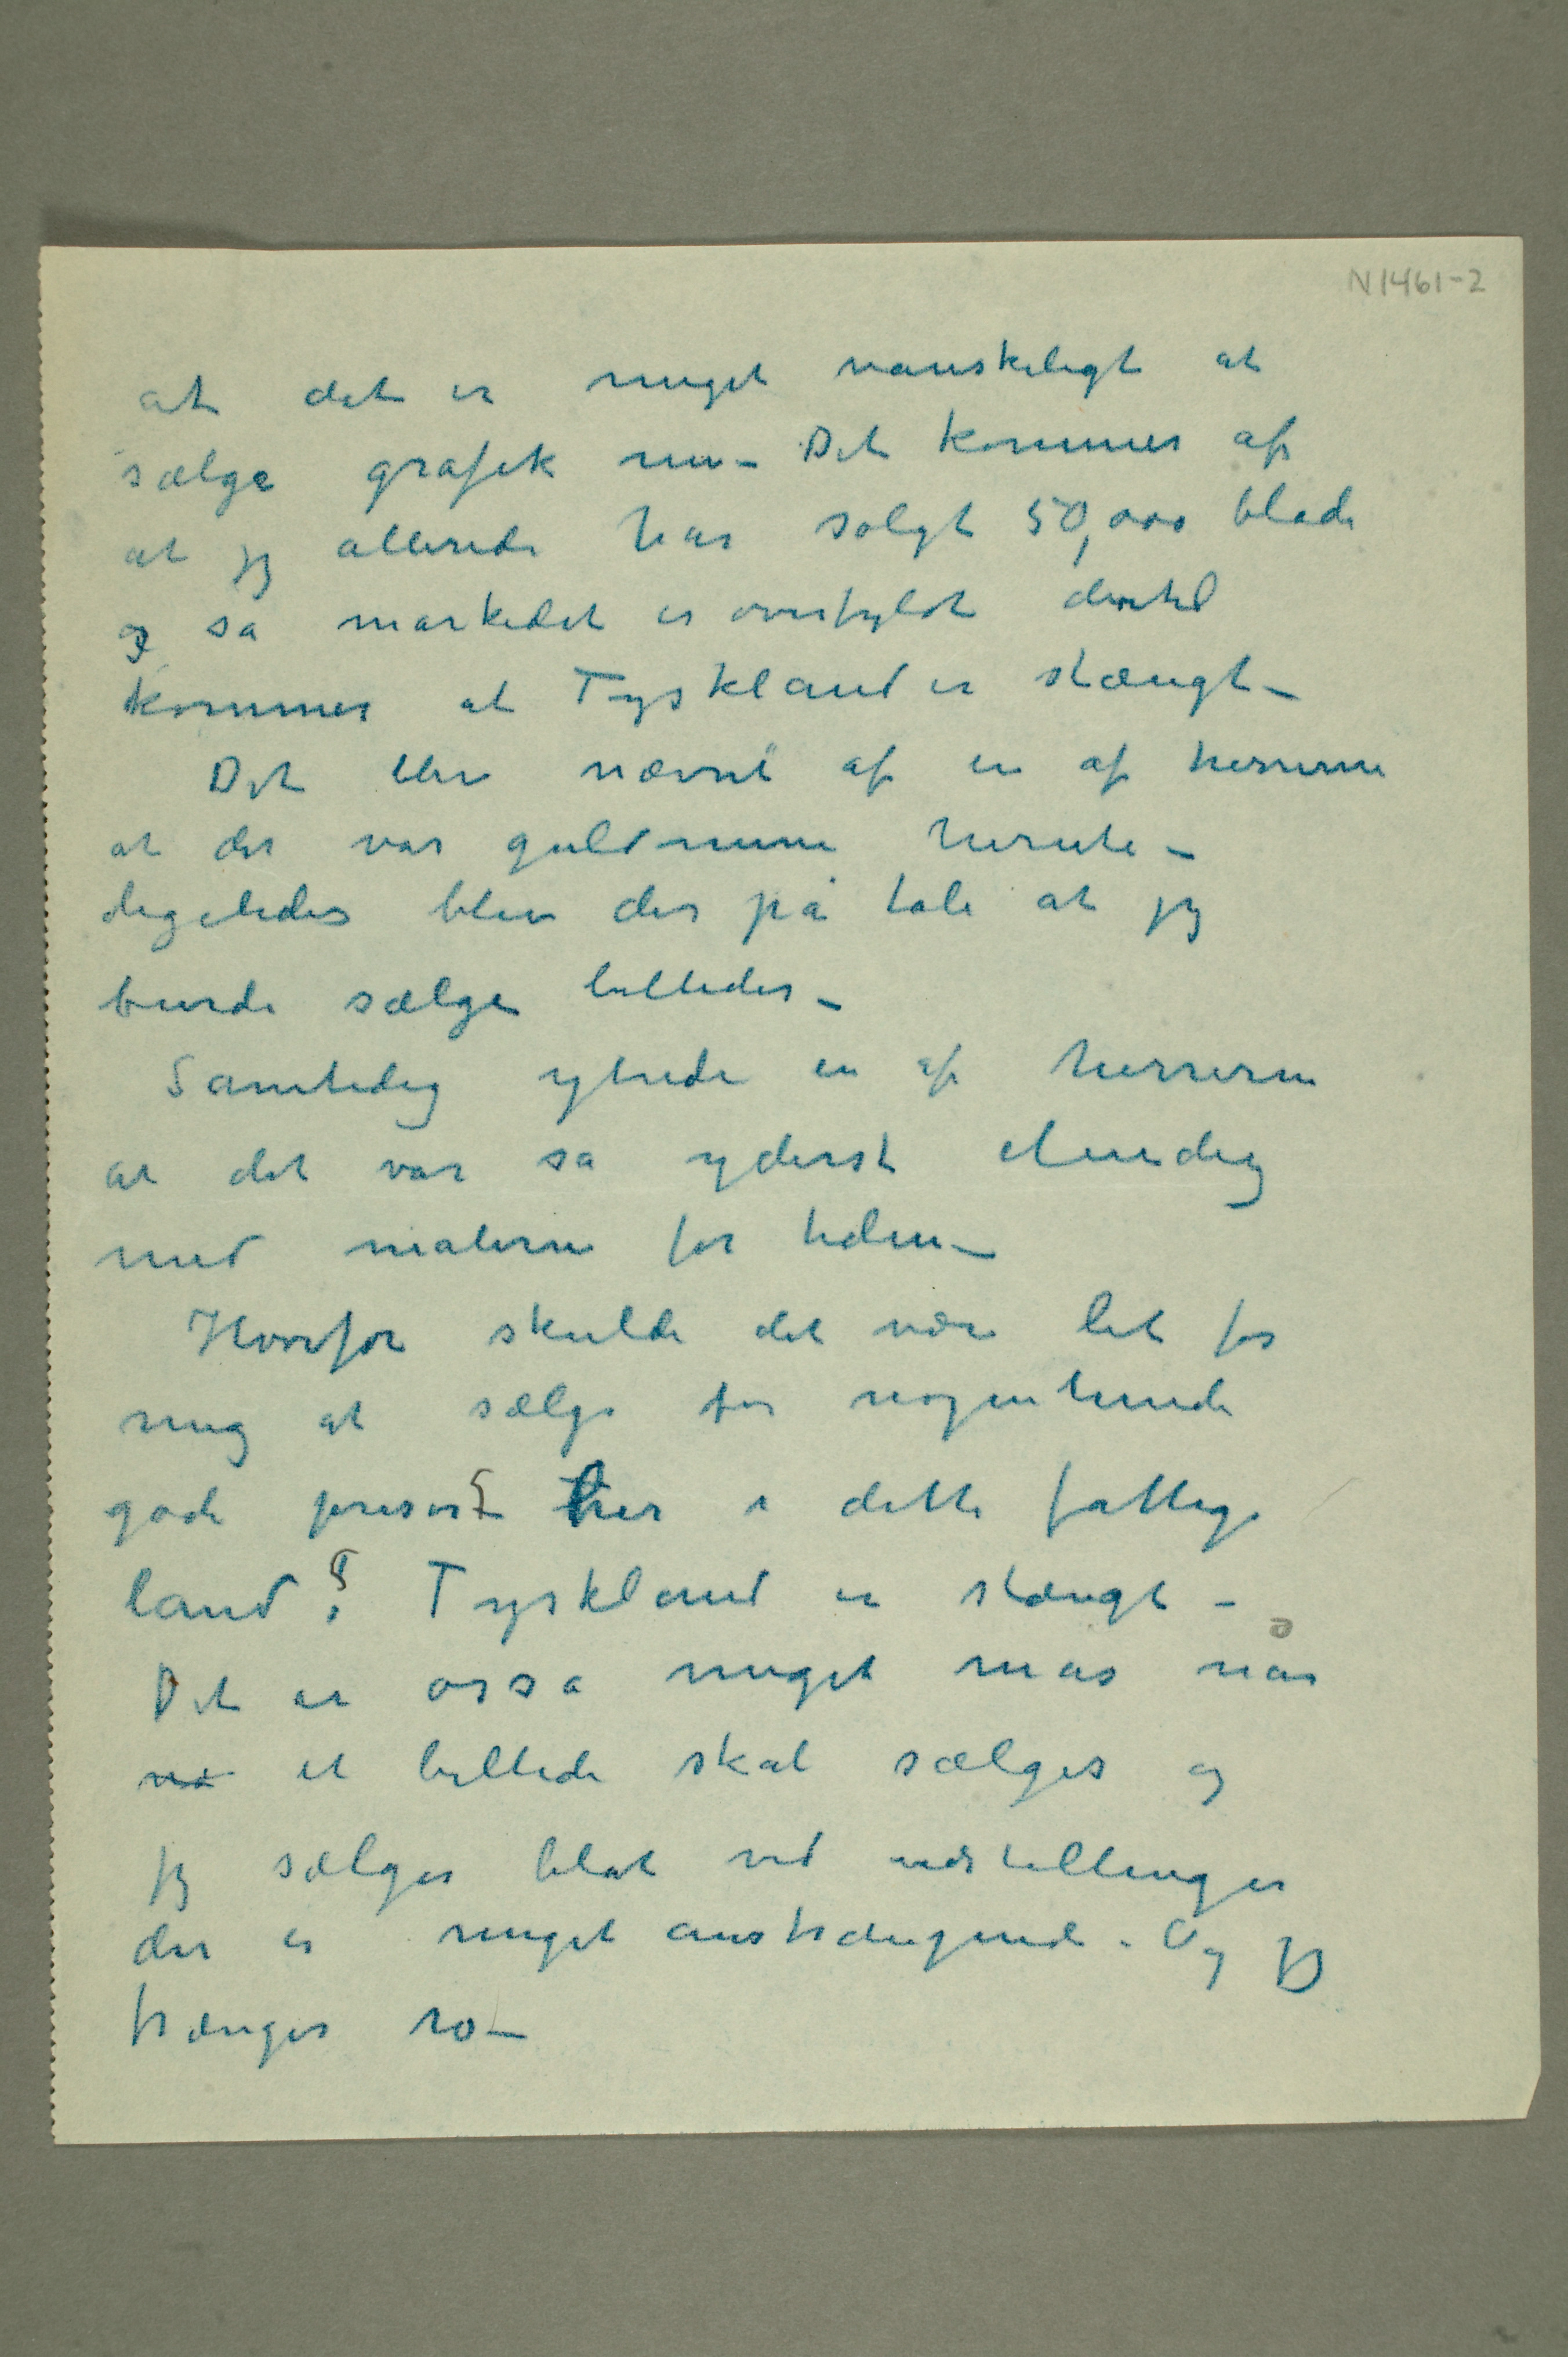 N1461-2
at det er meget vanskeligt at
sælge grafik nu – Det kommer af
at jeg allerede har solgt 50,000 blade
og så markedet er overfyldt dertil
kommer at Tyskland er stængt –
Det blev nævnt af en af herrerne
at der var guldmine herute –
ligeledes blev der på tale at jeg
burde sælge billeder –
Samtidig ytrede en af herrerne
at det var så yderst elendig
med malerne for tiden –
Hvorfor skulde det være let for
mig at sælge for nogenlunde
gode priser? her i dette fattige
land? Tyskland er stængt –
Det er osså meget mas når
nå et billede skal sælges og
jeg sælger blot ved udstillinger
der er meget anstrængende. Og jeg
trænger ro –